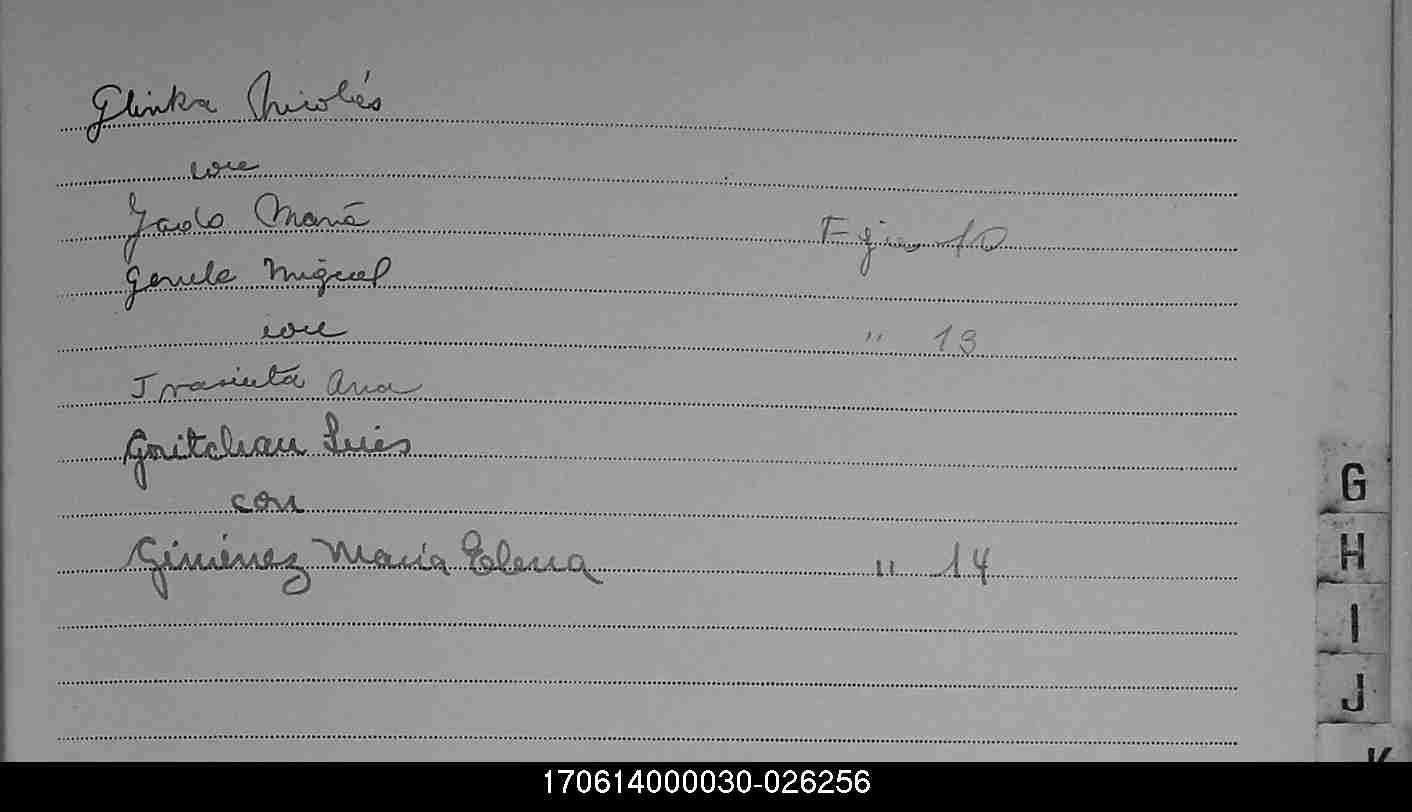 Glinka Nicolás
con
María Fojas 10
Miguel
con " 13
Ana
Gritchau Luis
con
Giménez María Elena " 14
G
H
I
J
K
170614000030-026256